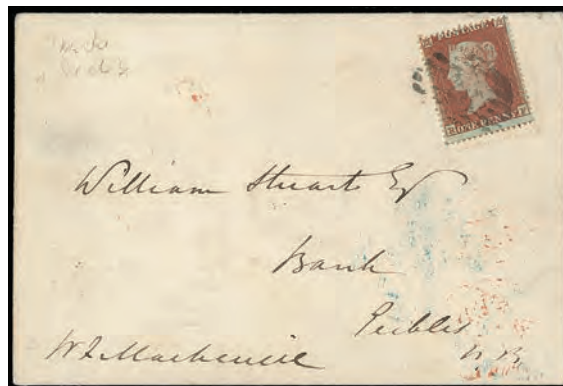 POSTAGE
ONE PENNY
William Stuart Esqr
Bank
Peebles
N.B.
W F Mackenzie